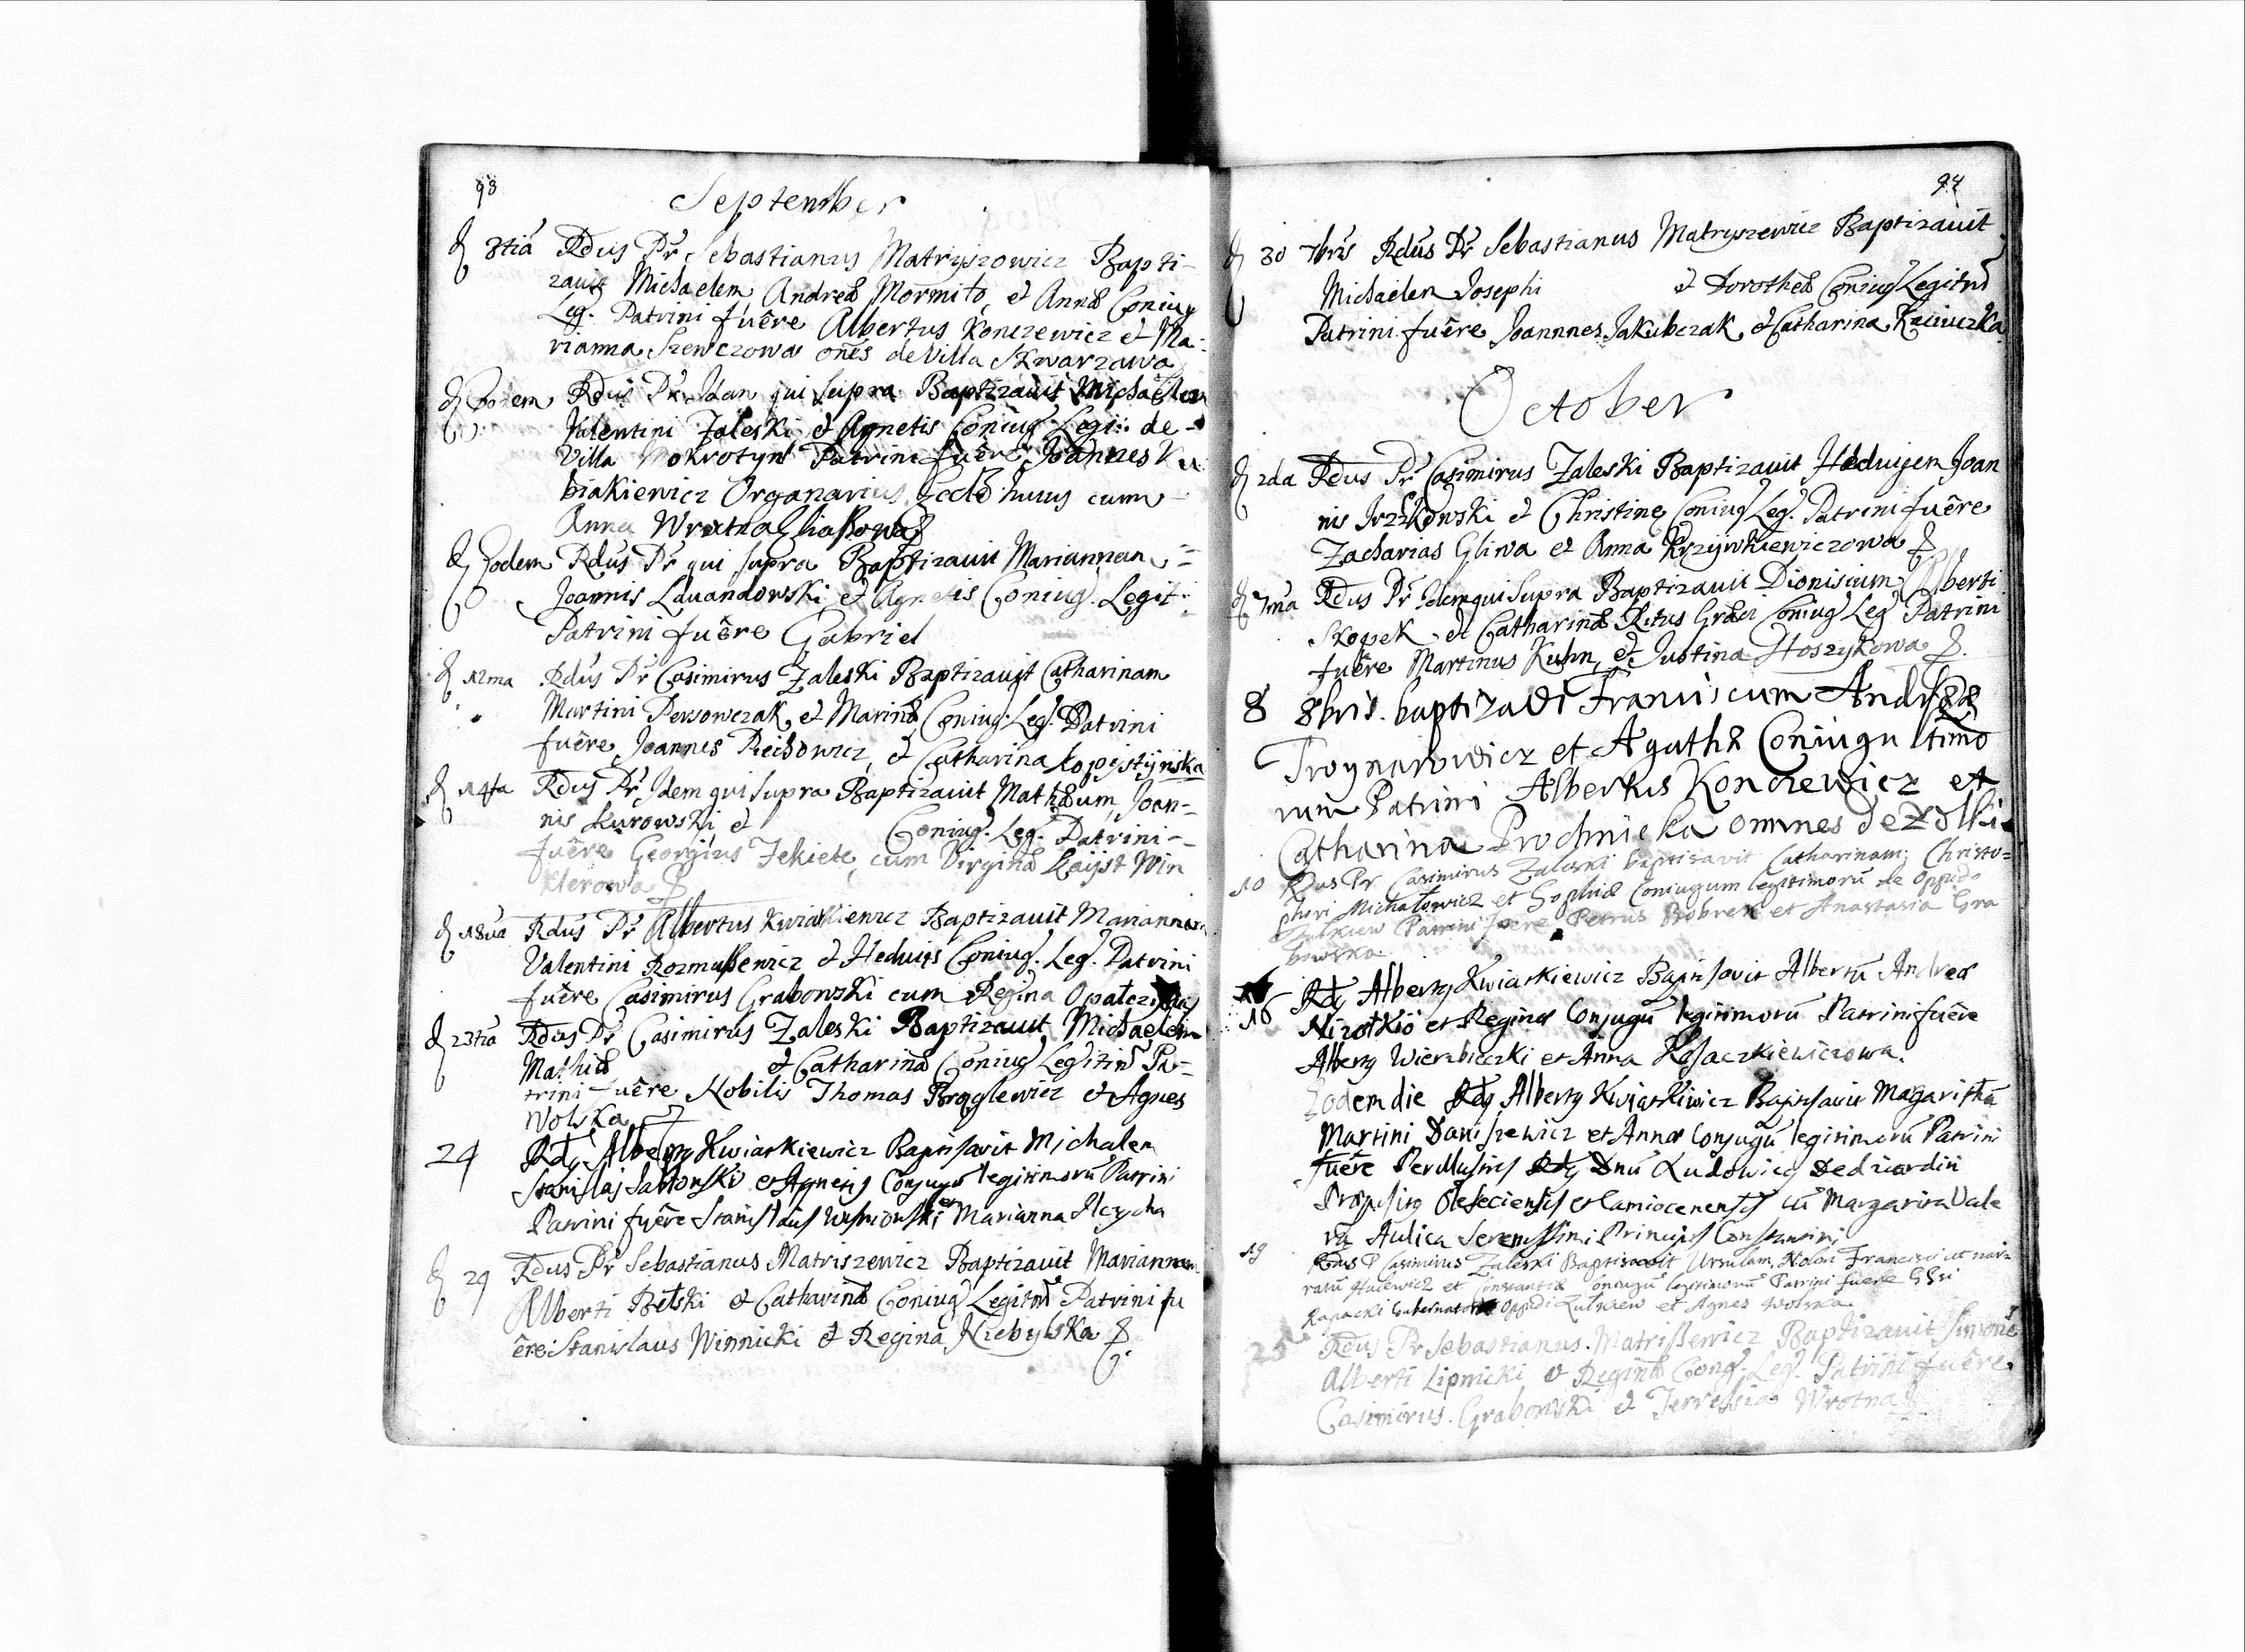 93
September
d 3tia Rdus Pr Sebastianus Matryszowicz Bapti-
zavit Michaelem Andreæ Mormito, et Annæ Coniug
Leg. Patrini fuêre Albertus Konczewicz et Ma-
rianna Szewczowa oñes de Villa Skwarzawa
d Eodem Rdus Pr Idem qui supra Baptizavit Michaelem
Valentini Zaleski et Agnetis Coniug Legi: de
Villa Mokrotyn Patrini fuêre Joannes Ku
biakiewicz Organarius Eccl huius cum
Anna Wrotna
d Eodem Rdus Pr qui supra Baptizavit Mariannam
Joannis Lavandowski et Agnetis Coniug. Legit:
Patrini fuêre Gabriel
d 12ma Rdus Pr Casimirus Zaleski Baptizavit Catharinam
Martini Persowczak, et Marinæ Coniug: Leg. Patrini
fuêre Joannes Reichowicz, et Catharina Kopystynska
d 14ta Rdus Pr Idem qui supra Baptizavit Mathæum, Joan-
nis Kurowski, et Coniug. Leg. Patrini-
fuêre Georgius Fekiete, cum Virginæ Kaijst Win
klerowa
d 18va Rdus Pr Albertus Kwiatkiewicz Baptizavit Mariannam
Valentini Rozmussewicz et Heduigis Coniug. Leg. Patrini
fuêre Casimirus Grabowski cum Regina
d 23tia Rdus Pr Casimirus Zaleski Baptizavit Michaelem
Mathiæ et Catharinæ Coniug Legitim Pa-
trini fuêre Nobilis Thomas Broglewicz et Agnes
Wolska
24 Rdg Albertg Kwiatkiewicz Baptisavit Michalem
Stanislai et Agnetis Conjugu legitimorũ Patrini
Patrini fuêre Stanislaus et Marianna
d 29 Rdus Pr Sebastianus Matriszewicz Baptizavit Mariannam
Alberti Betski et Catharinæ Coniug Legitm Patrini fu
êre: Stanislaus Winnicki et Regina Niebylska
94
d 30 7bris Rdus Pr Sebastianus Matryszewicz Baptizavit
Michaelem Josephi et Dorotheæ Coniug Legitm
Patrini fuêre Joannnes Jakubczak, et Catharina Kaciuczka
October
d 2da Rdus Pr Casimirus Zaleski Baptizavit Heduigem Joan
nis et Christinę Coniug Leg. Patrini fuêre
Zacharias Gliwa et Anna Krzywkiewiczowa
d 7ma Rdus Pr Idem qui supra Baptizavit Dionisium Alberti
Skopek et Catharinæ Ritus Græci Coniug Leg Patrini
fuêre Martinus Kuhn, et Justina Hoszykowa
8 8bris. baptizavi Franciscum Andreæ
Troynarowicz et Agathæ Coniugu ltimo
rum Patrini Albertus Konczewicz et
Catharina Prochnicka omnes de Zolki
10 Rdus Pr Casimirus Zaleski baptisavit Catharinam; Christo-
phori Michałowicz et Sophiæ Coniugum legitimorũ de Oppido
Zulkiew Patrini fuere Petrus Bobrek et Anastasia Gra
bowska
16 Rdg Albertg Kwiatkiewicz Baptisavit Albertũ Andreæ
Nizotkio et Reginæ Conjugũ legitimorũ Patrini fuêre
Albertg Wierzbiczki et Anna Kosaczkiewiczowa.
Eodem die Rdg Albertg Kwiatkiewicz Baptisavit Magarithã
Martini Daniszewicz et Annæ Conjugũ legitimorũ Patrini
fuêre Perillustris Rdg Dnũ Ludowicg
Præpositg Oleseciensis et Camiocenensis cũ Margarita Vale
Aulica Serenissimi Principis Constantini
19 Rdus P Casimirus Zaleski Baptisavit Ursulam,
Hulewicz et Constantiæ Coniugũ legitimorũ Patrini fuere
Rapacki Gubernator Oppidi Zulkiew et Agnes Wolska
25 Rdus Pr Sebastianus Matrissewicz Baptizavit Simonẽ
Alberti Lipnicki et Reginæ Cong. Leg. Patrini fuêre
Casimirus Grabowski et Terressia Wrotna